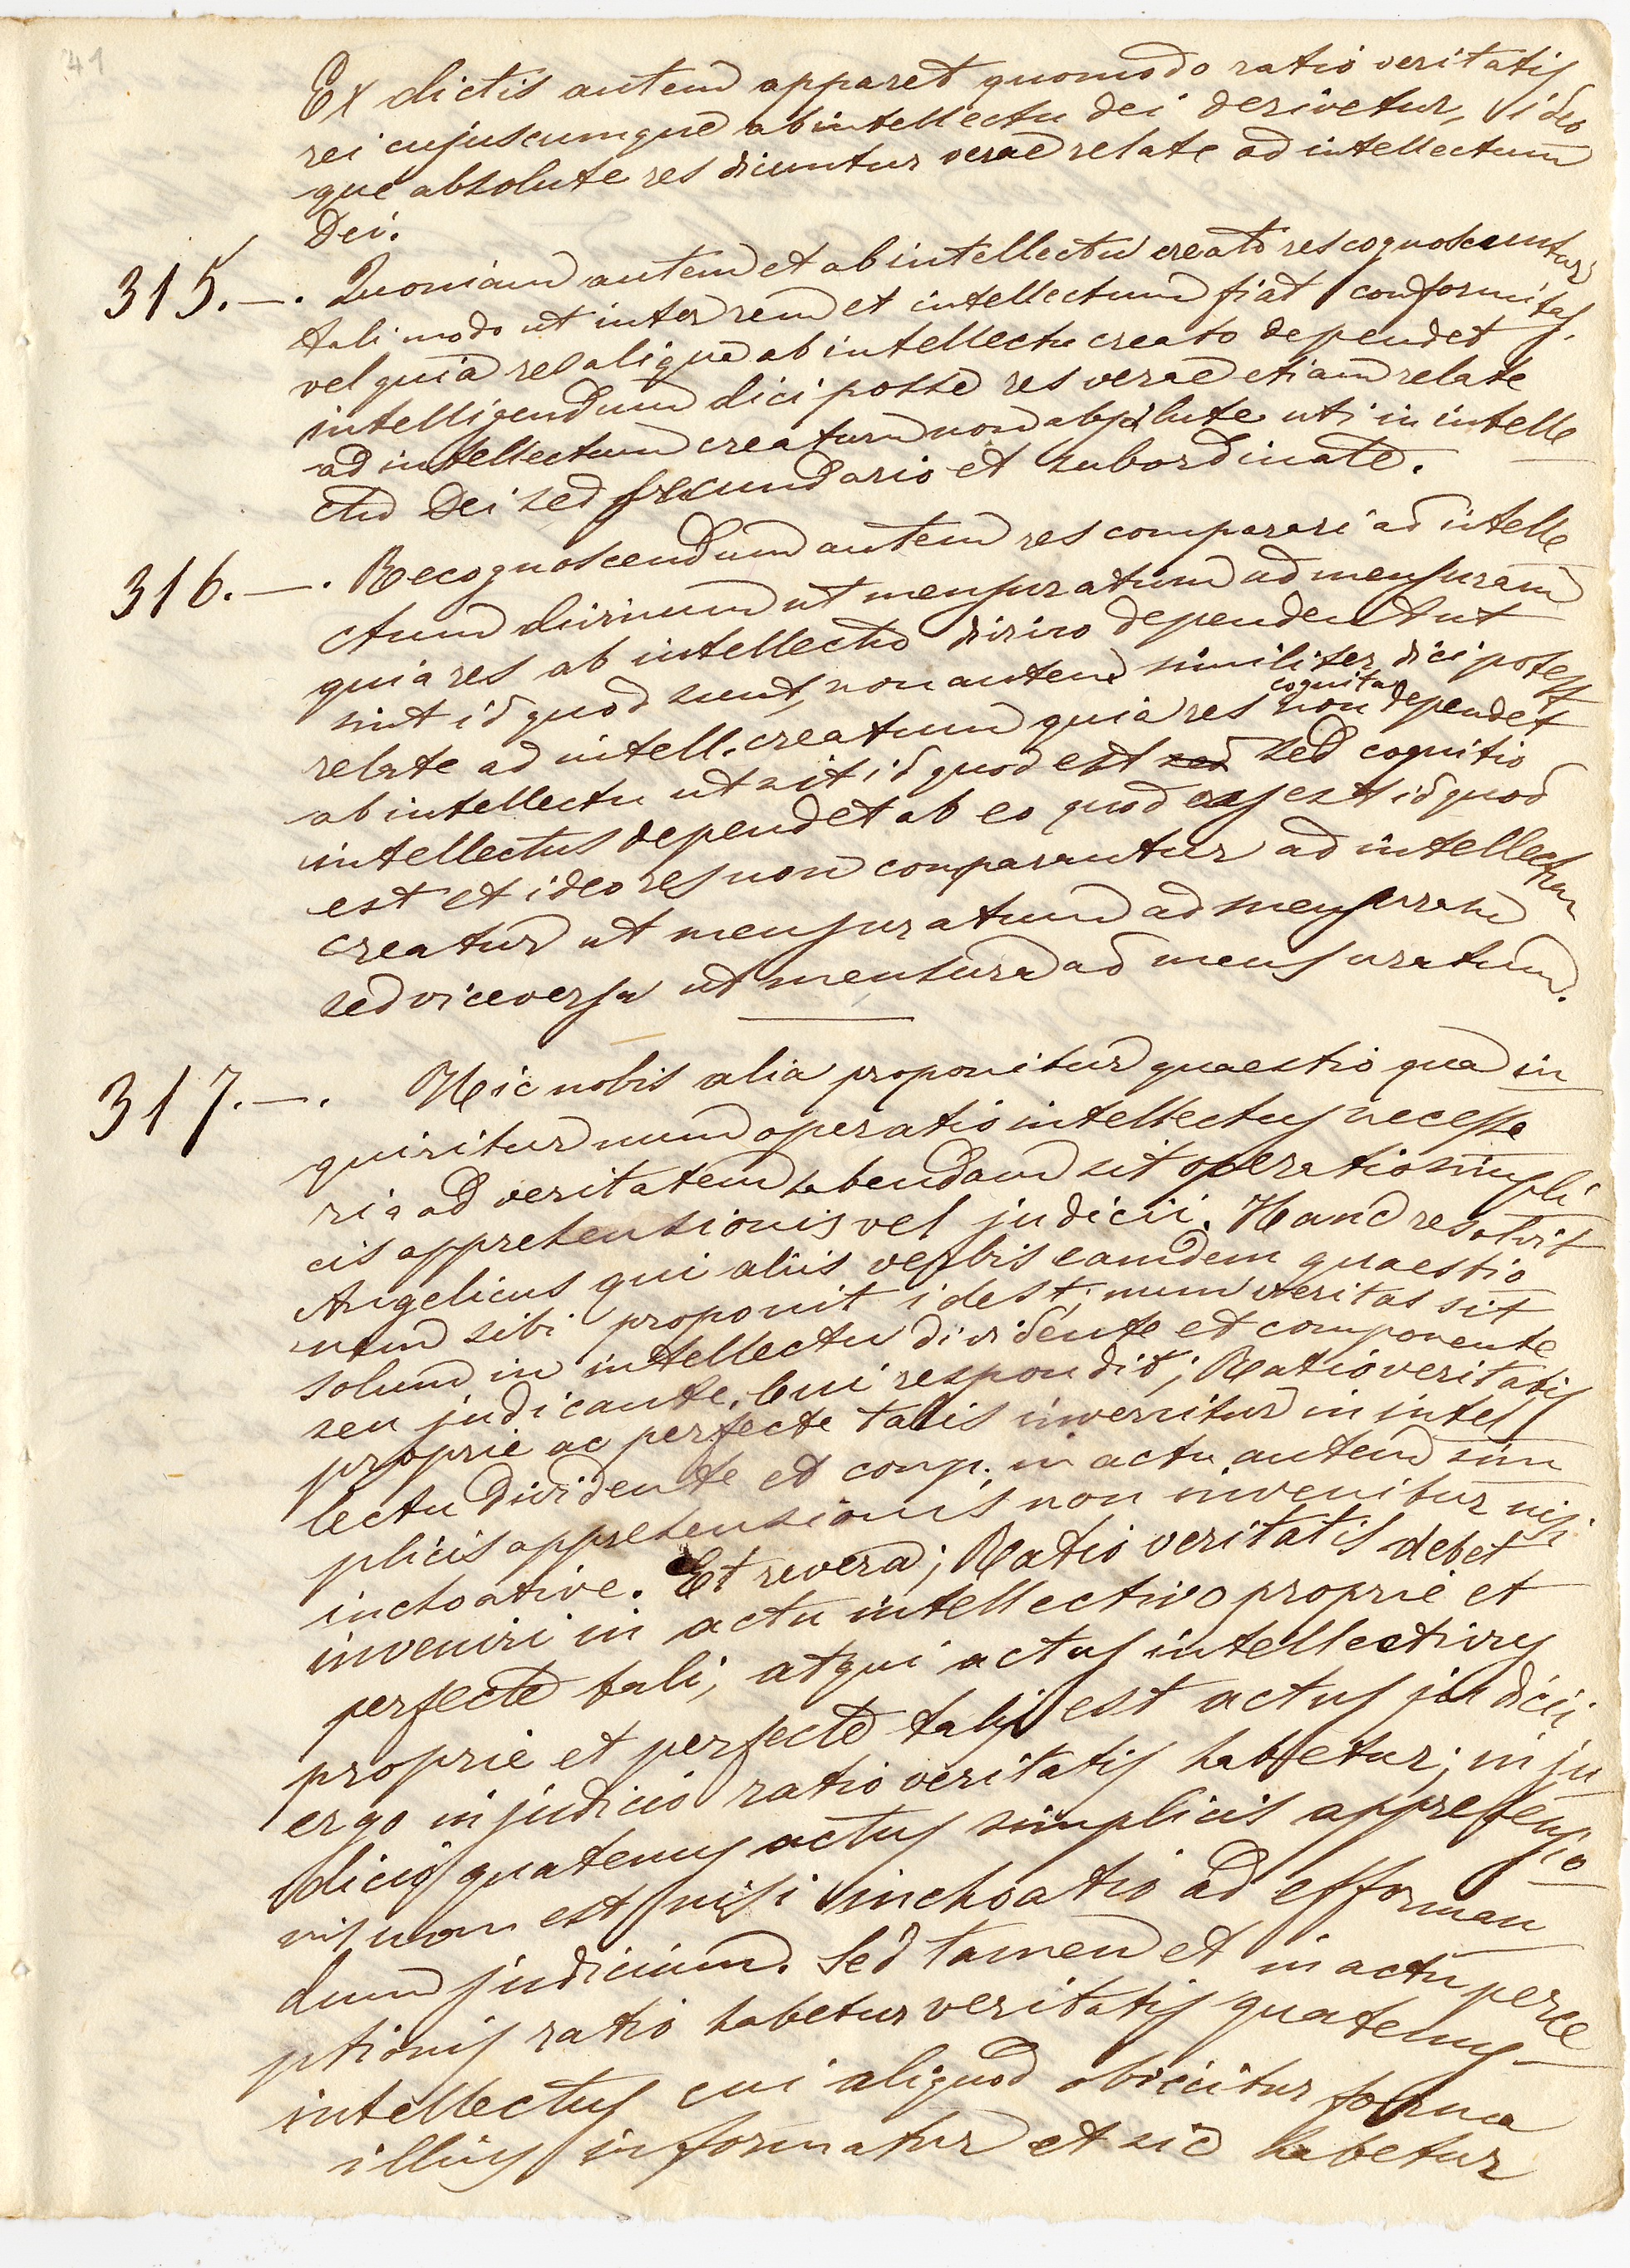 41
Ex dictis autem apparet quomodo ratio veritatis
rei cujuscumque ab intellectu dei derivetur, ideo
que absolute res dicuntur verae relate ad intellectum
Dei.
315.—. Quoniam autem et ab intellectu creato res cognoscuntur
tali modo ut inter rem et intellectum fiat conformitas,
vel quia res aliqua ab intellectu creato dependet
intelligendum dici posse res verae etiam relate
ad intellectum creatum non absolute uti in intelle
ctu Dei sed secundario et subordinate.
316.—. Recognoscendum autem res comparari ad intelle
ctum divinum ut mensuratum ad mensuram
quia res ab intellectu divino dependent ut
sint id quod sunt, non autem similiter dici potest
relate ad intell. creatum quia res cognita non dependet
ab intellectu ut sit id quod est sed sed cognitio
intellectus dependet ab eo quod res est id quod
est et ideo res non comparantur ad intellectum
creatum ut mensuratum ad mensuram
sed viceversa ut mensura ad mensuratum.
317.—. Hic nobis alia proponitur quaestio qua in
quiritur num operatio intellectus necessa
ria ad veritatem habendam sit operatio simpli
cis apprehensionis vel judicii. Hanc resolvit
Angelicus qui aliis verbis eamdem quaestio
nem sibi proponit idest; num veritas sit
solum in intellectu dividente et componente
seu judicante. Cui respondit; Ratio veritatis
proprie ac perfecte talis invenitur in intel
lectu dividente et comp. in actu autem sim
plicis apprehensionis non invenitur nisi
inchoative. Et revera; Ratio veritatis debet
inveniri in actu intellectivo proprie et
perfecte tali; atqui actus intellectivus
proprie et perfecte talis est actus judicii
ergo in judicio ratio veritatis habetur; in ju
dicio quatenus actus simplicis apprehensio
nis non est nisi inchoatio ad efforman
dum judicium. Sed tamen et in actu perce
ptionis ratio habetur veritatis quatenus
intellectus cui aliquod obiicitur forma
illius informatur et sic habetur